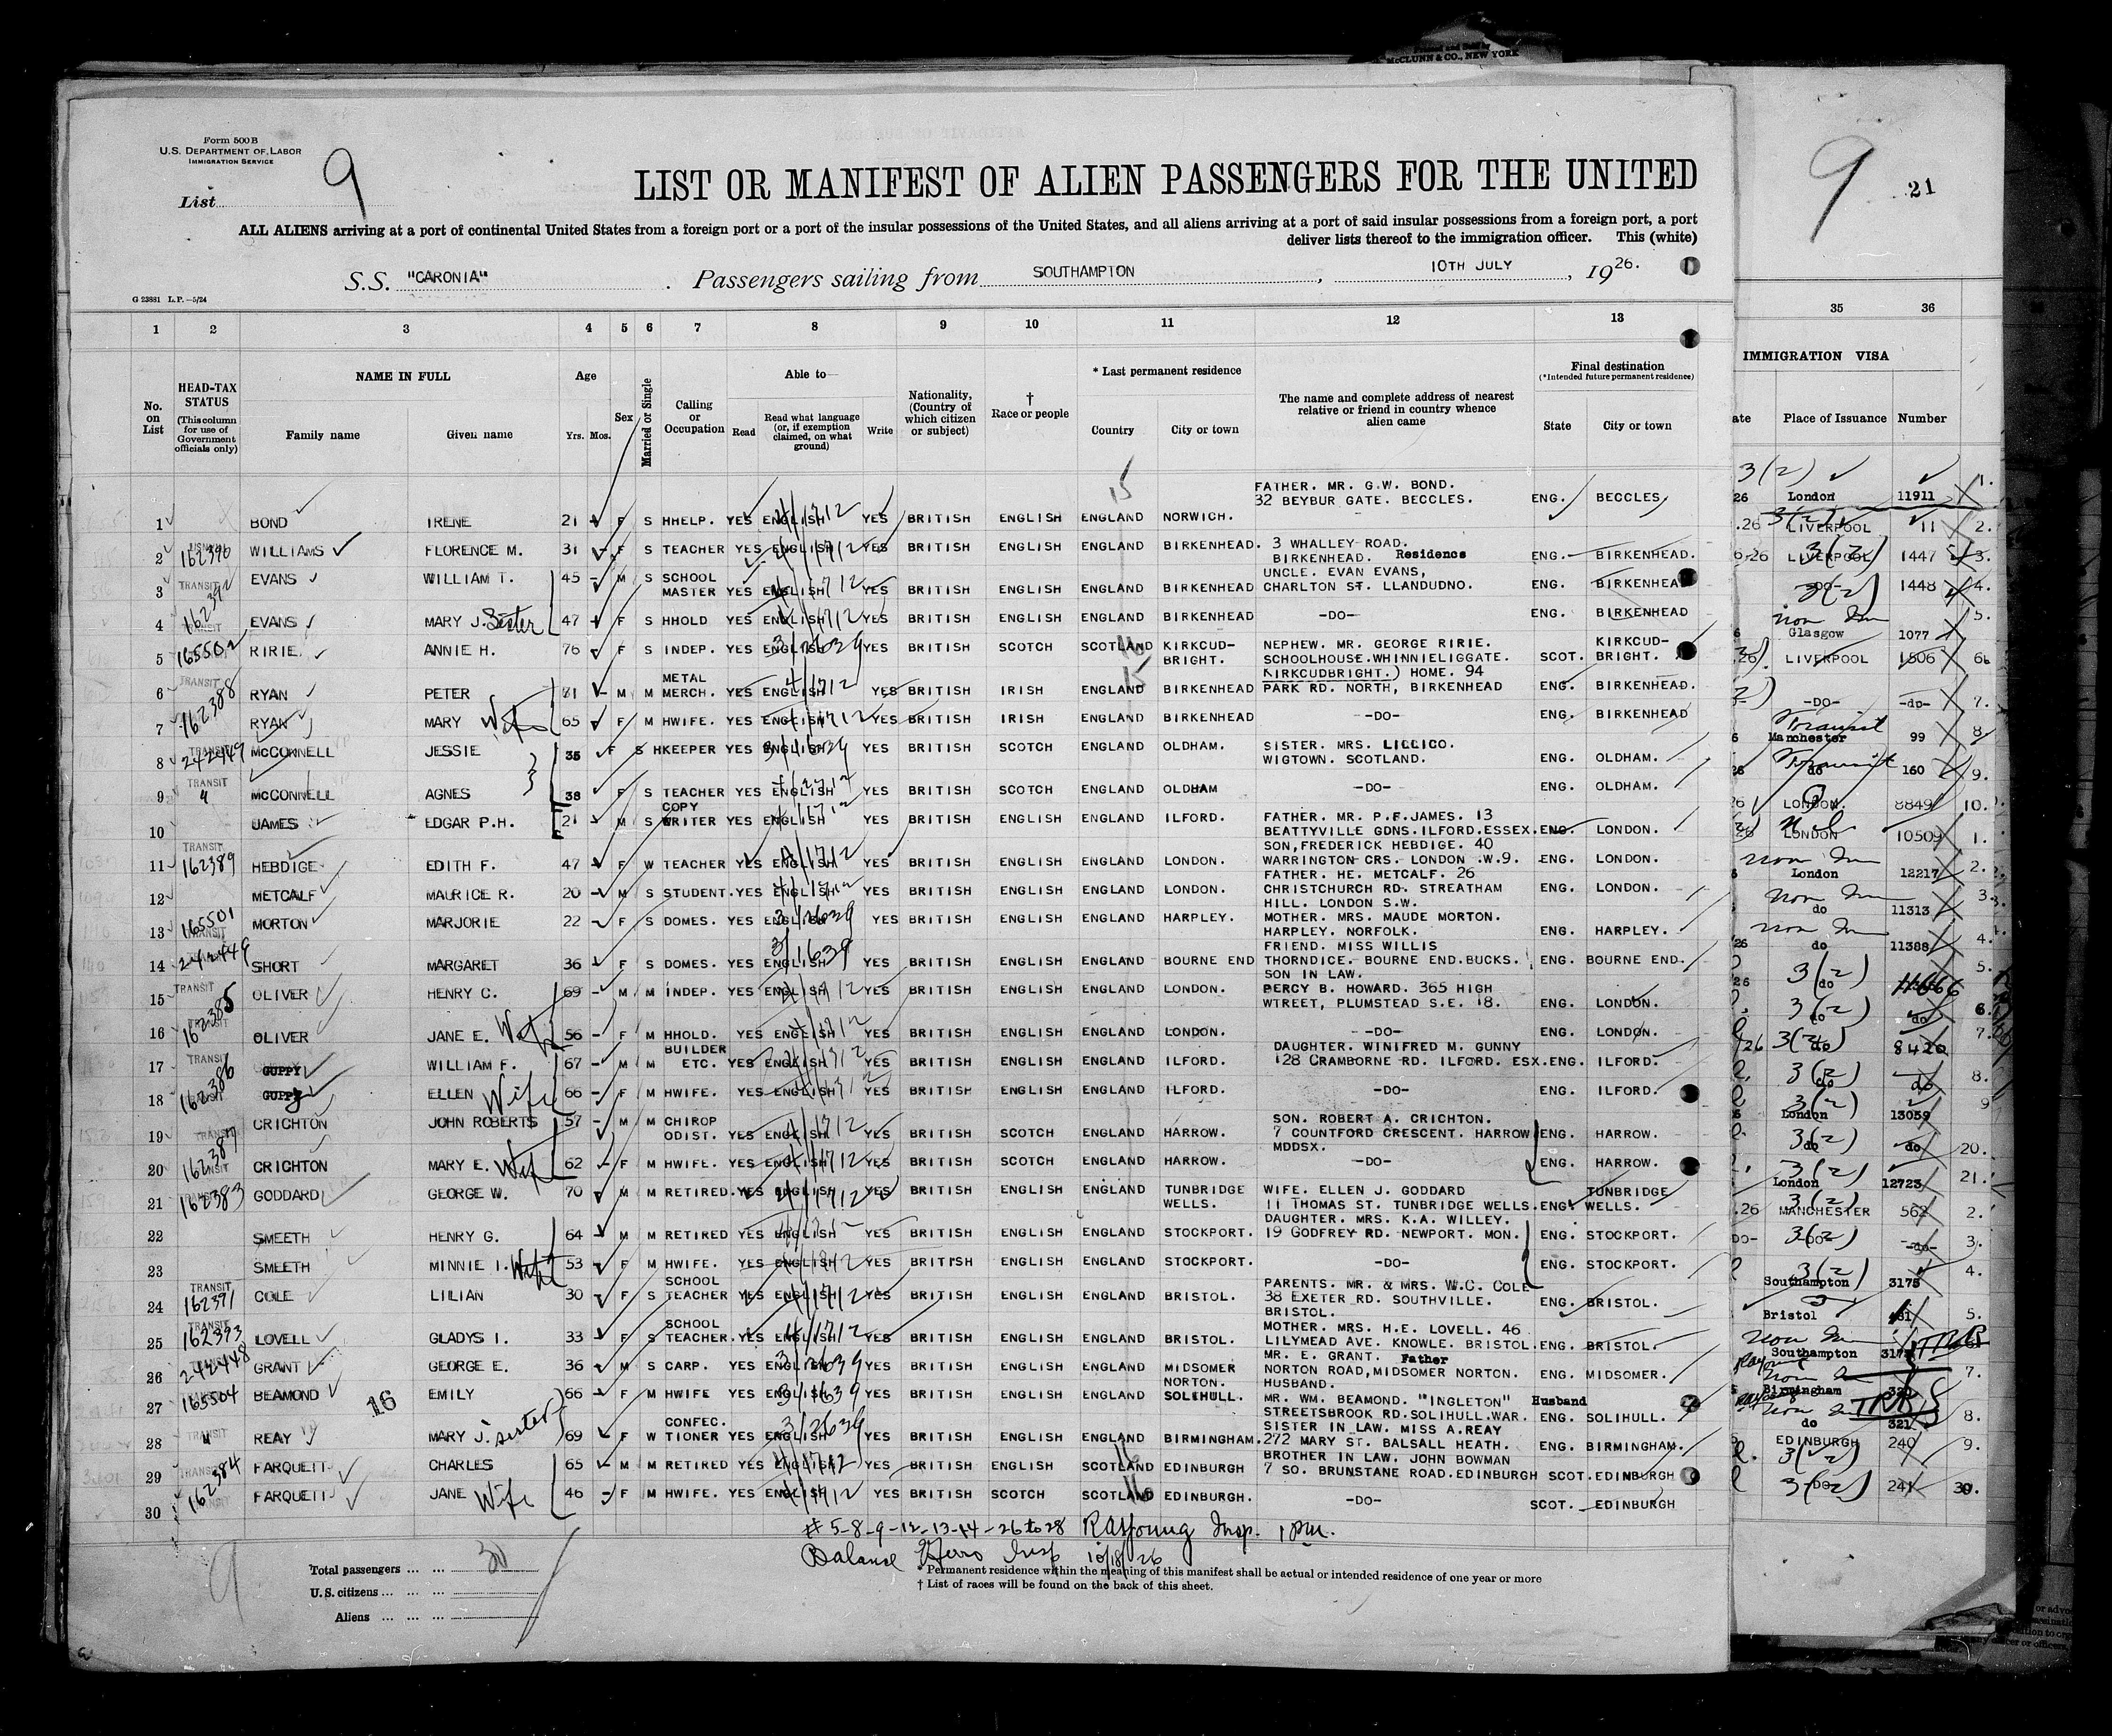 Printed and Sold by
McCLUNN & CO., NEW YORK
Form 500 B
U.S. DEPARTMENT OF LABOR
IMMIGRATION SERVICE
List 9
LIST OR MANIFEST OF ALIEN PASSENGERS FOR THE UNITED
ALL ALIENS arriving at a port of continental United States from a foreign port or a port of the insular possessions of the United States, and all aliens arriving at a port of said insular possessions from a foreign port, a port
deliver lists thereof to the immigration officer. This (white)
S.S. "CARONIA" . Passengers sailing from SOUTHAMPTON , 10TH JULY , 1926.
G 23881 L.P.—5/24
1 2 3 4 5 6 7 8 9 10 11 12 13
No. on List
HEAD-TAX STATUS (This column for use of Government officials only)
NAME IN FULL
Family name Given name
Age
Yrs. Mos.
Sex
Married or Single
Calling or Occupation
Able to—
Read Read what language (or, if exemption claimed, on what ground) Write
Nationality, (Country of which citizen or subject)
† Race or people
* Last permanent residence
Country City or town
The name and complete address of nearest relative or friend in country whence alien came
Final destination
(*Intended future permanent residence)
State City or town
15
FATHER. MR. G.W. BOND.
32 BEYBUR GATE. BECCLES. ENG. BECCLES
1 BOND IRENE 21 F S HHELP. YES ENGLISH YES BRITISH ENGLISH ENGLAND NORWICH.
2 162390 WILLIAMS FLORENCE M. 31 F S TEACHER YES ENGLISH YES BRITISH ENGLISH ENGLAND BIRKENHEAD. 3 WHALLEY ROAD.
BIRKENHEAD. Residence ENG. BIRKENHEAD.
3 TRANSIT EVANS WILLIAM T. 45 M S SCHOOL MASTER YES ENGLISH YES BRITISH ENGLISH ENGLAND BIRKENHEAD UNCLE. EVAN EVANS,
CHARLTON ST. LLANDUDNO. ENG. BIRKENHEAD
4 162392 EVANS MARY J. Sister 47 F S HHOLD YES ENGLISH YES BRITISH ENGLISH ENGLAND BIRKENHEAD -DO- ENG. BIRKENHEAD
5 165502 RIRIE ANNIE H. 76 F S INDEP. YES ENGLISH YES BRITISH SCOTCH SCOTLAND KIRKCUD-
BRIGHT. NEPHEW. MR. GEORGE RIRIE.
SCHOOLHOUSE.WHINNIELIGGATE. SCOT. KIRKCUD-
BRIGHT.
KIRKCUDBRIGHT.) HOME. 94
6 TRANSIT RYAN PETER 81 M M METAL MERCH. YES ENGLISH YES BRITISH IRISH ENGLAND BIRKENHEAD PARK RD. NORTH, BIRKENHEAD ENG. BIRKENHEAD.
7 162388 RYAN MARY Wife 65 F M HWIFE. YES ENGLISH YES BRITISH IRISH ENGLAND BIRKENHEAD -DO- ENG. BIRKENHEAD
8 242449 McCONNELL JESSIE 35 F S HKEEPER YES ENGLISH YES BRITISH SCOTCH ENGLAND OLDHAM. SISTER. MRS. LILLICO.
WIGTOWN. SCOTLAND. ENG. OLDHAM.
9 TRANSIT " McCONNELL AGNES 38 F S TEACHER YES ENGLISH YES BRITISH SCOTCH ENGLAND OLDHAM -DO- ENG. OLDHAM.
10 JAMES EDGAR P.H. 21 M S COPY WRITER YES ENGLISH YES BRITISH ENGLISH ENGLAND ILFORD. FATHER. MR. P.F.JAMES. 13
BEATTYVILLE GDNS.ILFORD.ESSEX. ENG. LONDON.
11 TRANSIT 162389 HEBDIGE EDITH F. 47 F W TEACHER YES ENGLISH YES BRITISH ENGLISH ENGLAND LONDON. SON,FREDERICK HEBDIGE. 40
WARRINGTON CRS. LONDON .W.9. ENG. LONDON.
12 METCALF MAURICE R. 20 M S STUDENT. YES ENGLISH YES BRITISH ENGLISH ENGLAND LONDON. FATHER. HE. METCALF. 26
CHRISTCHURCH RD. STREATHAM ENG. LONDON.
HILL. LONDON S.W.
13 165501 MORTON MARJORIE 22 F S DOMES. YES ENGLISH YES BRITISH ENGLISH ENGLAND HARPLEY. MOTHER. MRS. MAUDE MORTON.
HARPLEY. NORFOLK. ENG. HARPLEY.
14 242449 SHORT MARGARET 36 F S DOMES. YES ENGLISH YES BRITISH ENGLISH ENGLAND BOURNE END FRIEND. MISS WILLIS
THORNDICE. BOURNE END.BUCKS. ENG. BOURNE END.
15 TRANSIT OLIVER HENRY C. 69 M M INDEP. YES ENGLISH YES BRITISH ENGLISH ENGLAND LONDON. SON IN LAW.
PERCY B. HOWARD. 365 HIGH
WTREET, PLUMSTEAD S.E. 18. ENG. LONDON.
16 162385 OLIVER JANE E. Wife 56 F M HHOLD. YES ENGLISH YES BRITISH ENGLISH ENGLAND LONDON. -DO- ENG. LONDON.
17 TRANSIT GUPPY WILLIAM F. 67 M M BUILDER ETC. YES ENGLISH YES BRITISH ENGLISH ENGLAND ILFORD. DAUGHTER. WINIFRED M. GUNNY
128 CRAMBORNE RD. ILFORD. ESX. ENG. ILFORD.
18 162386 GUPPY ELLEN Wife 66 F M HWIFE. YES ENGLISH YES BRITISH ENGLISH ENGLAND ILFORD. -DO- ENG. ILFORD.
19 CRICHTON JOHN ROBERTS 57 M M CHIROP ODIST. YES ENGLISH YES BRITISH SCOTCH ENGLAND HARROW. SON. ROBERT A. CRICHTON.
7 COUNTFORD CRESCENT. HARROW ENG. HARROW.
MDDSX.
20 162387 CRICHTON MARY E. Wife 62 F M HWIFE. YES ENGLISH YES BRITISH SCOTCH ENGLAND HARROW. -DO- ENG. HARROW.
21 162383 GODDARD GEORGE W. 70 M M RETIRED. YES ENGLISH YES BRITISH ENGLISH ENGLAND TUNBRIDGE WELLS. WIFE. ELLEN J. GODDARD
11 THOMAS ST. TUNBRIDGE WELLS. ENG. TUNBRIDGE WELLS.
22 SMEETH HENRY G. 64 M M RETIRED YES ENGLISH YES BRITISH ENGLISH ENGLAND STOCKPORT. DAUGHTER. MRS. K.A. WILLEY.
19 GODFREY RD. NEWPORT. MON. ENG. STOCKPORT.
23 SMEETH MINNIE I. Wife 53 F M HWIFE. YES ENGLISH YES BRITISH ENGLISH ENGLAND STOCKPORT. -DO- ENG. STOCKPORT.
24 TRANSIT 162391 COLE LILIAN 30 F S SCHOOL TEACHER YES ENGLISH YES BRITISH ENGLISH ENGLAND BRISTOL. PARENTS. MR. & MRS. W.C. COLE
38 EXETER RD. SOUTHVILLE.
BRISTOL. ENG. BRISTOL.
25 TRANSIT 162393 LOVELL GLADYS I. 33 F S SCHOOL TEACHER. YES ENGLISH YES BRITISH ENGLISH ENGLAND BRISTOL. MOTHER. MRS. H.E. LOVELL. 46
LILYMEAD AVE. KNOWLE. BRISTOL. ENG. BRISTOL.
26 242448 GRANT GEORGE E. 36 M S CARP. YES ENGLISH YES BRITISH ENGLISH ENGLAND MIDSOMER NORTON. MR. E. GRANT. Father
NORTON ROAD,MIDSOMER NORTON. ENG. MIDSOMER.
27 165504 BEAMOND 16 EMILY 66 F M HWIFE YES ENGLISH YES BRITISH ENGLISH ENGLAND SOLIHULL. HUSBAND.
MR. WM. BEAMOND. "INGLETON" Husband
STREETSBROOK RD.SOLIHULL.WAR. ENG. SOLIHULL.
28 TRANSIT " REAY MARY J. sister 69 F W CONFEC. TIONER YES ENGLISH YES BRITISH ENGLISH ENGLAND BIRMINGHAM. SISTER IN LAW. MISS A.REAY
272 MARY ST. BALSALL HEATH. ENG. BIRMINGHAM.
29 TRANSIT FARQUETI CHARLES 65 M M RETIRED YES ENGLISH YES BRITISH ENGLISH SCOTLAND EDINBURGH BROTHER IN LAW. JOHN BOWMAN
7 SO. BRUNSTANE ROAD.EDINBURGH SCOT. EDINBURGH
30 162384 FARQUETI JANE Wife 46 F M HWIFE. YES ENGLISH YES BRITISH SCOTCH SCOTLAND EDINBURGH. -DO- SCOT. EDINBURGH
# 5-8-9-12-13-14-26 to 28 Insp. 1 pm.
Balance Insp
Total passengers ... ... 30
U.S. citizens ... ... ...
Aliens ... ... ...
* Permanent residence within the meaning of this manifest shall be actual or intended residence of one year or more
† List of races will be found on the back of this sheet.
9 21
35 36
IMMIGRATION VISA
Place of Issuance Number
3(2) 1.
26 London 11911
.26 3(2) LIVERPOOL 11 2.
6-26 LIVERPOOL 3(2) 1447 3.
-DO- 3(2) 1448 4.
5.
Glasgow 1077
.26 LIVERPOOL 1506 6
-DO- -do- 7.
Transit
Manchester 99 8
Transit
26 do 160 9.
26 LONDON. 8849 10.
26 LONDON 10509 1.
London 12217 2.
do 11313 3.
26 do 11388 4.
26 3(2) do 5.
3(2) do do 6.
26 3(2) do 8420 7.
3(2) do do 8.
3(2) London 13059 9
3(2) do do 20.
3(2) London 12723 21.
.26 MANCHESTER 3(2) 562 2.
DO- 3(2) -DO- -do- 3.
3(2) Southampton 3175 4.
Bristol 5.
Southampton
Birmingham 320 7.
do 321 8.
EDINBURGH 240 9.
3(2)
3(2) -DO- 241 30.